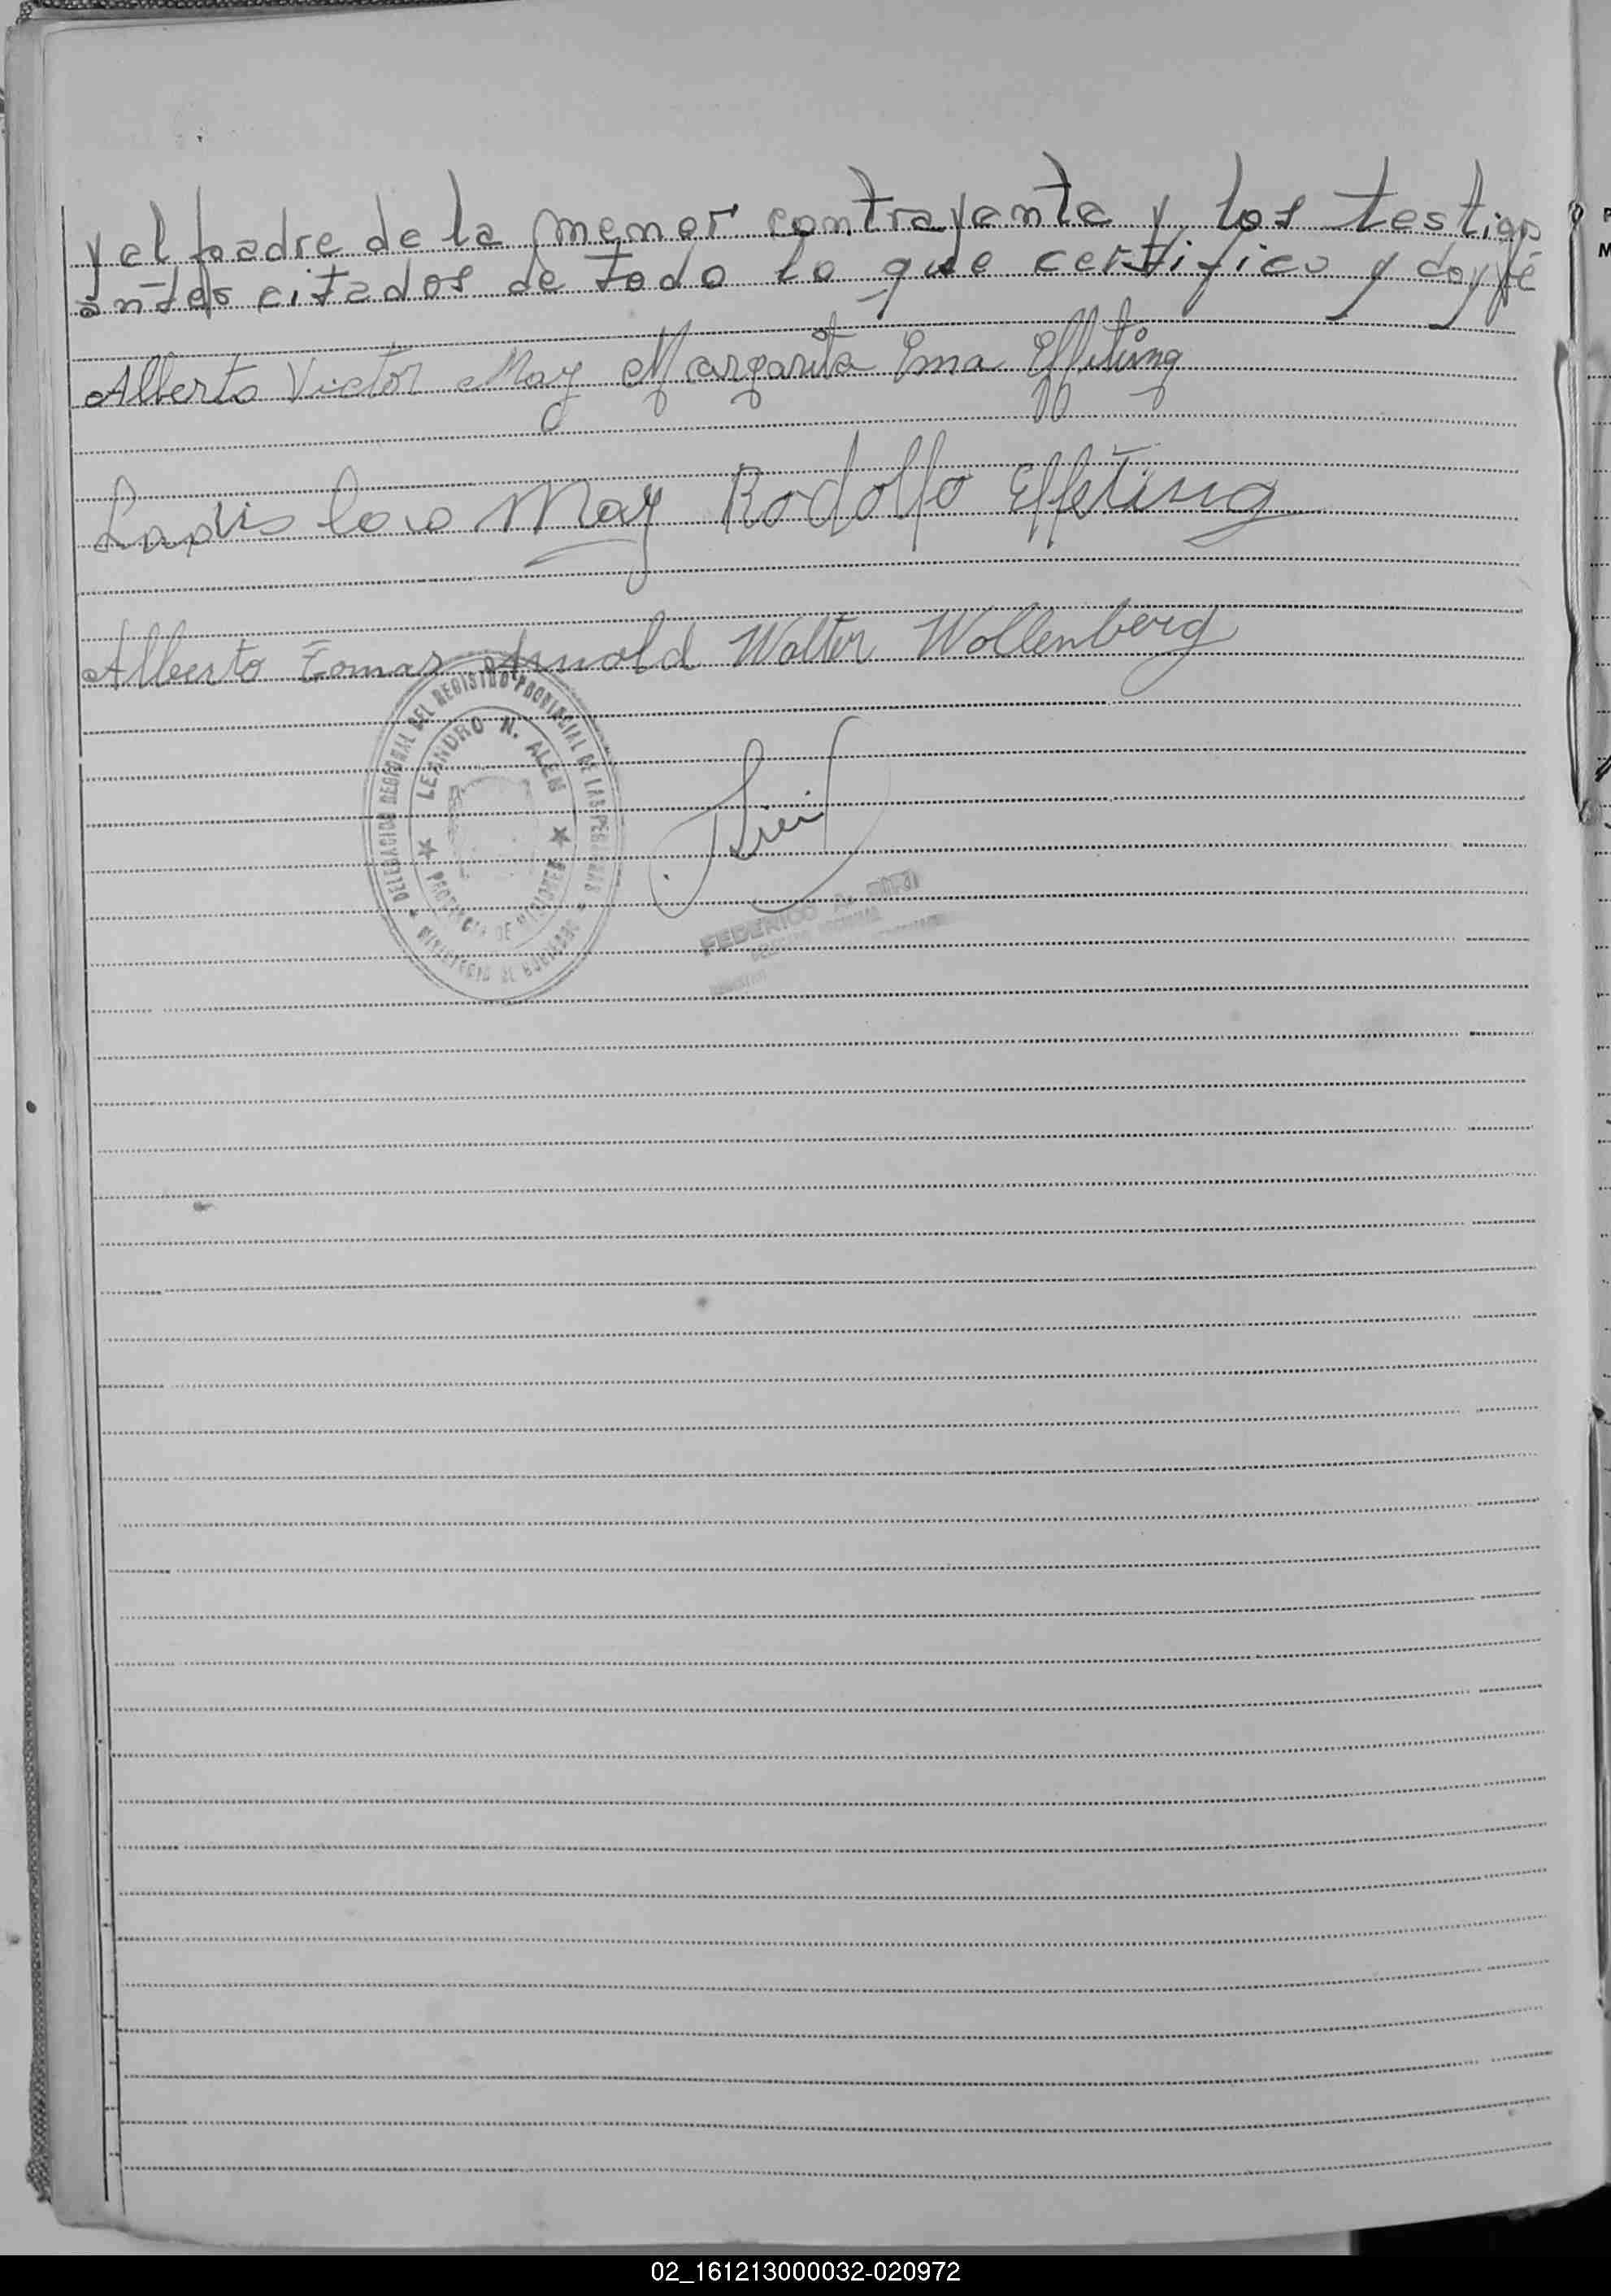 y el padre de la menor contrayente y los testigos
antes citados de todo lo que certifico y doy fé
Alberto Victor May Margarita Ema Effting
Ladislao May Rodolfo Effting
Alberto Tomas Arnold Walter Wollenberg
DELEGACION REGIONAL DEL REGISTRO PROVINCIAL DE LAS PERSONAS
LEANDRO N. ALEM
PROVINCIA DE MISIONES
MINISTERIO DE GOBIERNO
FEDERICO A.
DELEGADO REGIONAL
02_161213000032-020972